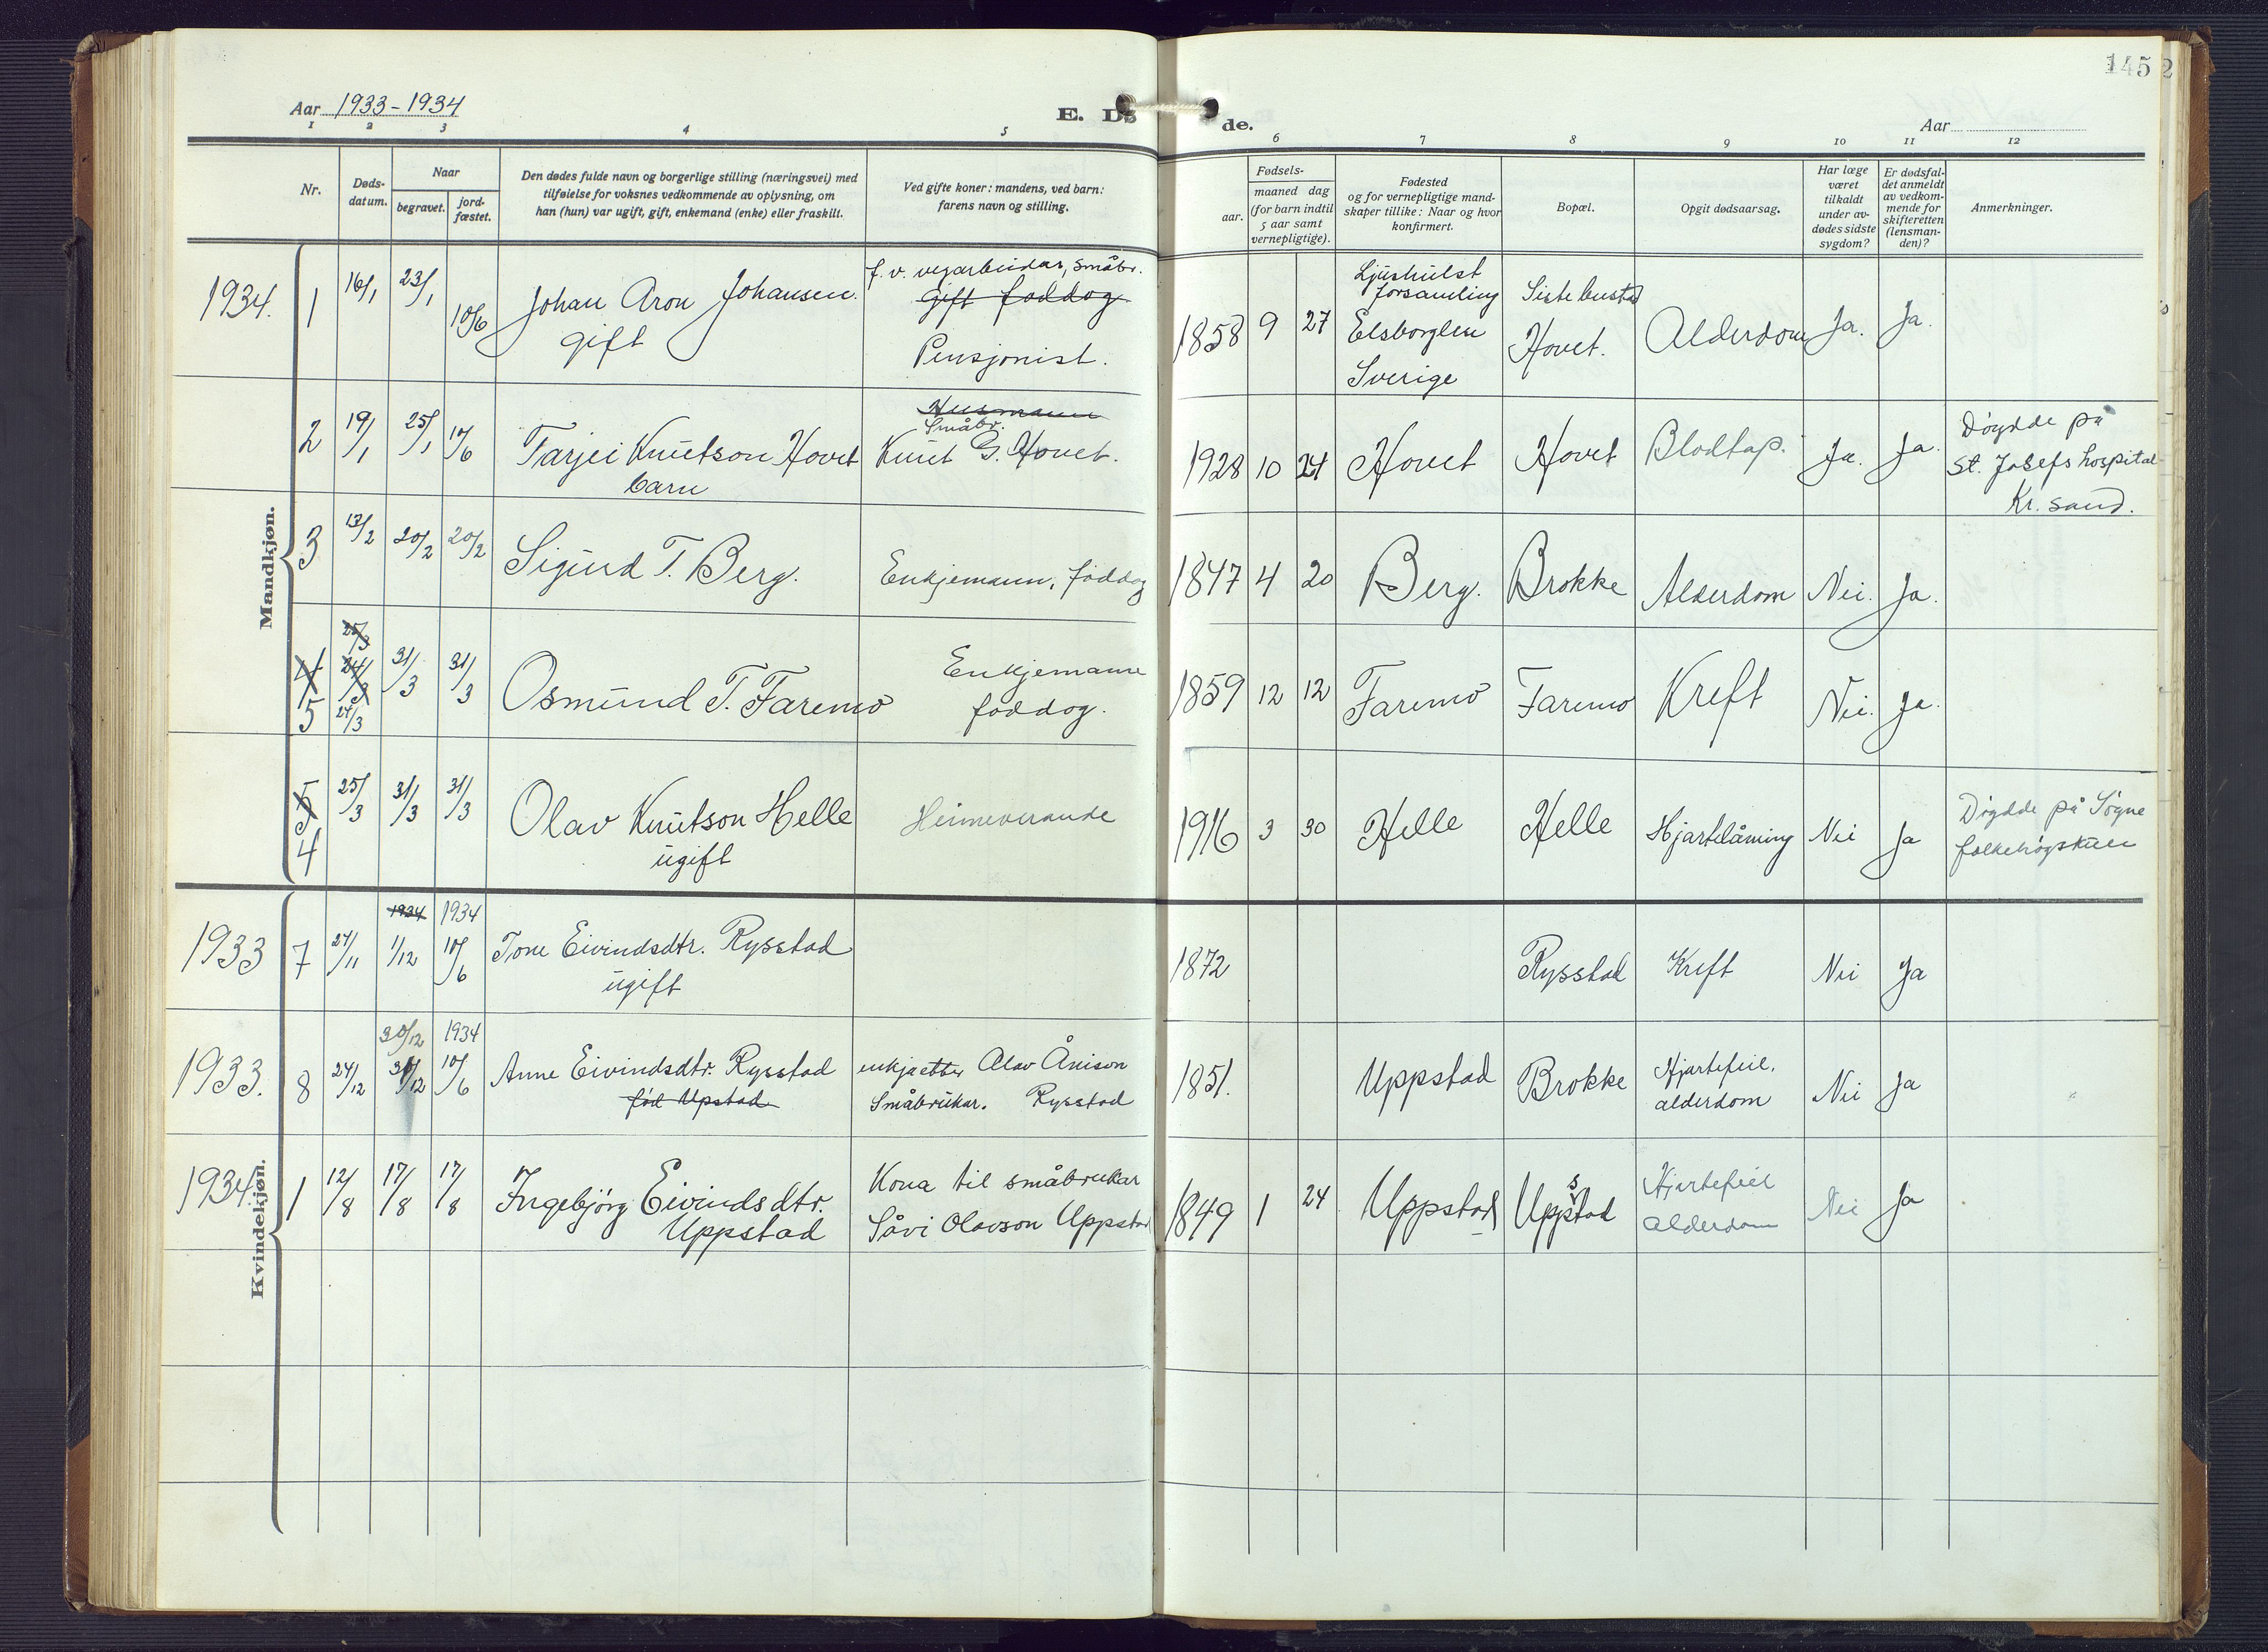 145
Aar 1933-1934
E. Dø
de.
Aar
1 2 3 4 5
6 7 8 9 10 11 12
Nr.
Døds-
datum.
Naar
begravet.
jord-
fæstet.
Den dødes fulde navn og borgerlige stilling (næringsvei) med
tilføielse for voksnes vedkommende av oplysning, om
han (hun) var ugift, gift, enkemand (enke) eller fraskilt.
Ved gifte koner: mandens, ved barn:
farens navn og stilling.
Fødsels-
aar.
maaned dag
(for barn indtil
5 aar samt
vernepligtige).
Fødested
og for vernepligtige mand-
skaper tillike: Naar og hvor
konfirmert.
Bopæl.
Opgit dødsaarsag.
Har læge
været
tilkaldt
under av-
dødes sidste
sygdom?
Er dødsfal-
det anmeldt
av vedkom-
mende for
skifteretten
(lensman-
den)?
Anmerkninger.
Mandkjøn.
1934. 1 16/1 23/1 10/6 Johan Aron Johansen.
gift
f. v. vegarbeidar, småbr.
Gift foddog
Pensjonist.
1858 9 27
Ljushulst
forsamling
Elsborglen
Sverige
Siste bustad
Hovet.
Alderdom Ja. Ja.
2 19/1 25/1 17/6 Tarjei Knutson Hovet
barn
Husmann
Småbr.
Knut G. Hovet.
1928 10 24 Hovet Hovet Blodtap. Ja. Ja.
Døydde på
St. Josefs hospital
Kr. sand.
3 13/2 20/2 20/2 Sigurd T. Berg. Enkjemann, føddog
1847 4 20 Berg. Brokke Alderdom Nei. Ja.
4
5
24/3
24/3
31/3 31/3 Osmund T. Faremo
Enkjemann
føddog.
1859 12 12 Faremo Faremo Kreft Nei. Ja.
5
4
25/3 31/3 31/3 Olav Knutson Helle
ugift
Heimeverande
1916 3 30 Helle Helle Hjartelåming Nei Ja
Døydde på Søgne
folkehøgskule
Kvindekjøn.
1934 1934
1933 7 27/11 1/12 10/6 Tone Eivindsdtr. Rysstad
ugift
1872 Rysstad Kreft Nei Ja
30/12 1934
1933. 8 24/12 30/12 10/6 Anne Eivindsdtr. Rysstad
fød Upstad
enkje etter Olav Ånison
Småbrukar. Rysstad
1851. Uppstad Brokke
Hjartefeil,
alderdom
Nei Ja
1934. 1 12/8 17/8 17/8 Ingebjörg Eivindsdtr.
Uppstad
Kona til småbrukar
Såvi Olavson Uppstad
1849 1 24 Uppstad Uppstad
Hjartefeil
alderdom
Nei Ja